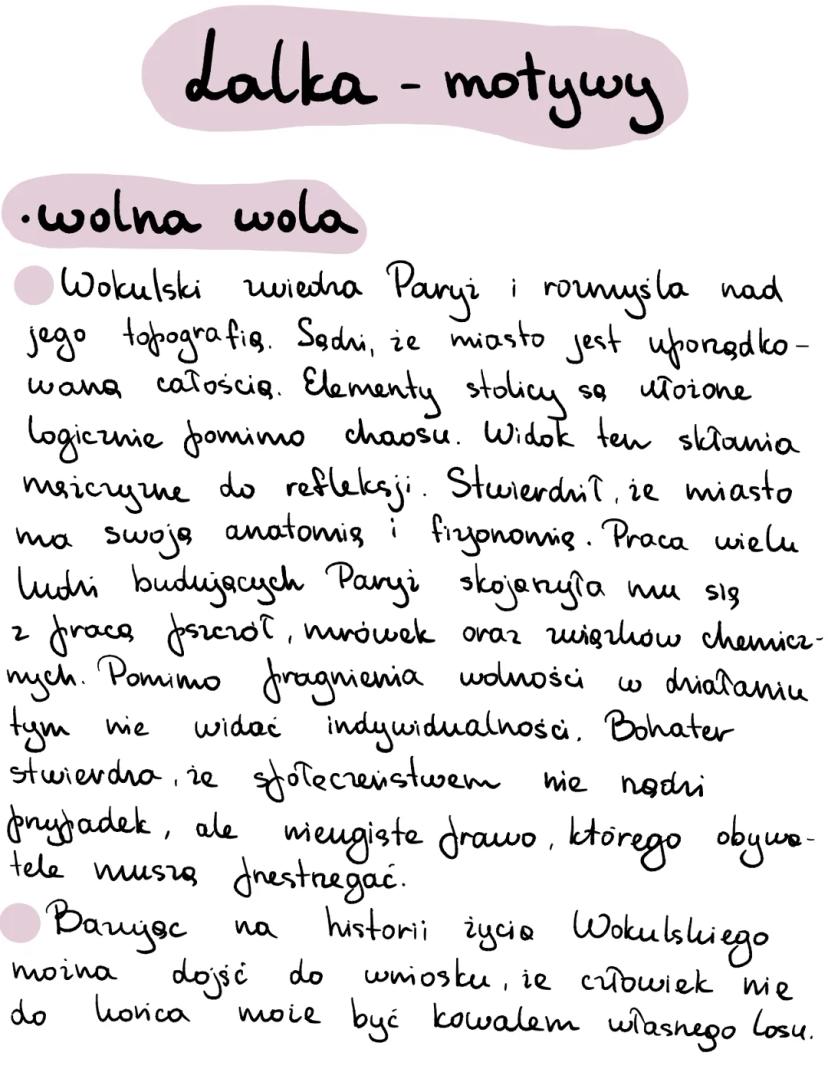 Lalka - motywy
·wolna wola
Wokulski zwiedza Paryż i rozmyśla nad
jego topografią. Sądzi, że miasto jest uporządko-
waną całością. Elementy stolicy są ułożone
logicznie pomimo chaosu. Widok ten skłania
mężczyznę do refleksji. Stwierdził, że miasto
ma swoją anatomię i fizjonomię. Praca wielu
ludzi budujących Paryż skojarzyła mu się
z pracą pszczół, mrówek oraz związków chemicz-
nych. Pomimo pragnienia wolności w działaniu
tym nie widać indywidualności. Bohater
stwierdza, że społeczeństwem nie rządzi
przypadek, ale nieugięte prawo, którego obywa-
tele muszą przestrzegać.
Bazując na historii życia Wokulskiego
można dojść do wniosku, że człowiek nie
do końca może być kowalem własnego losu.